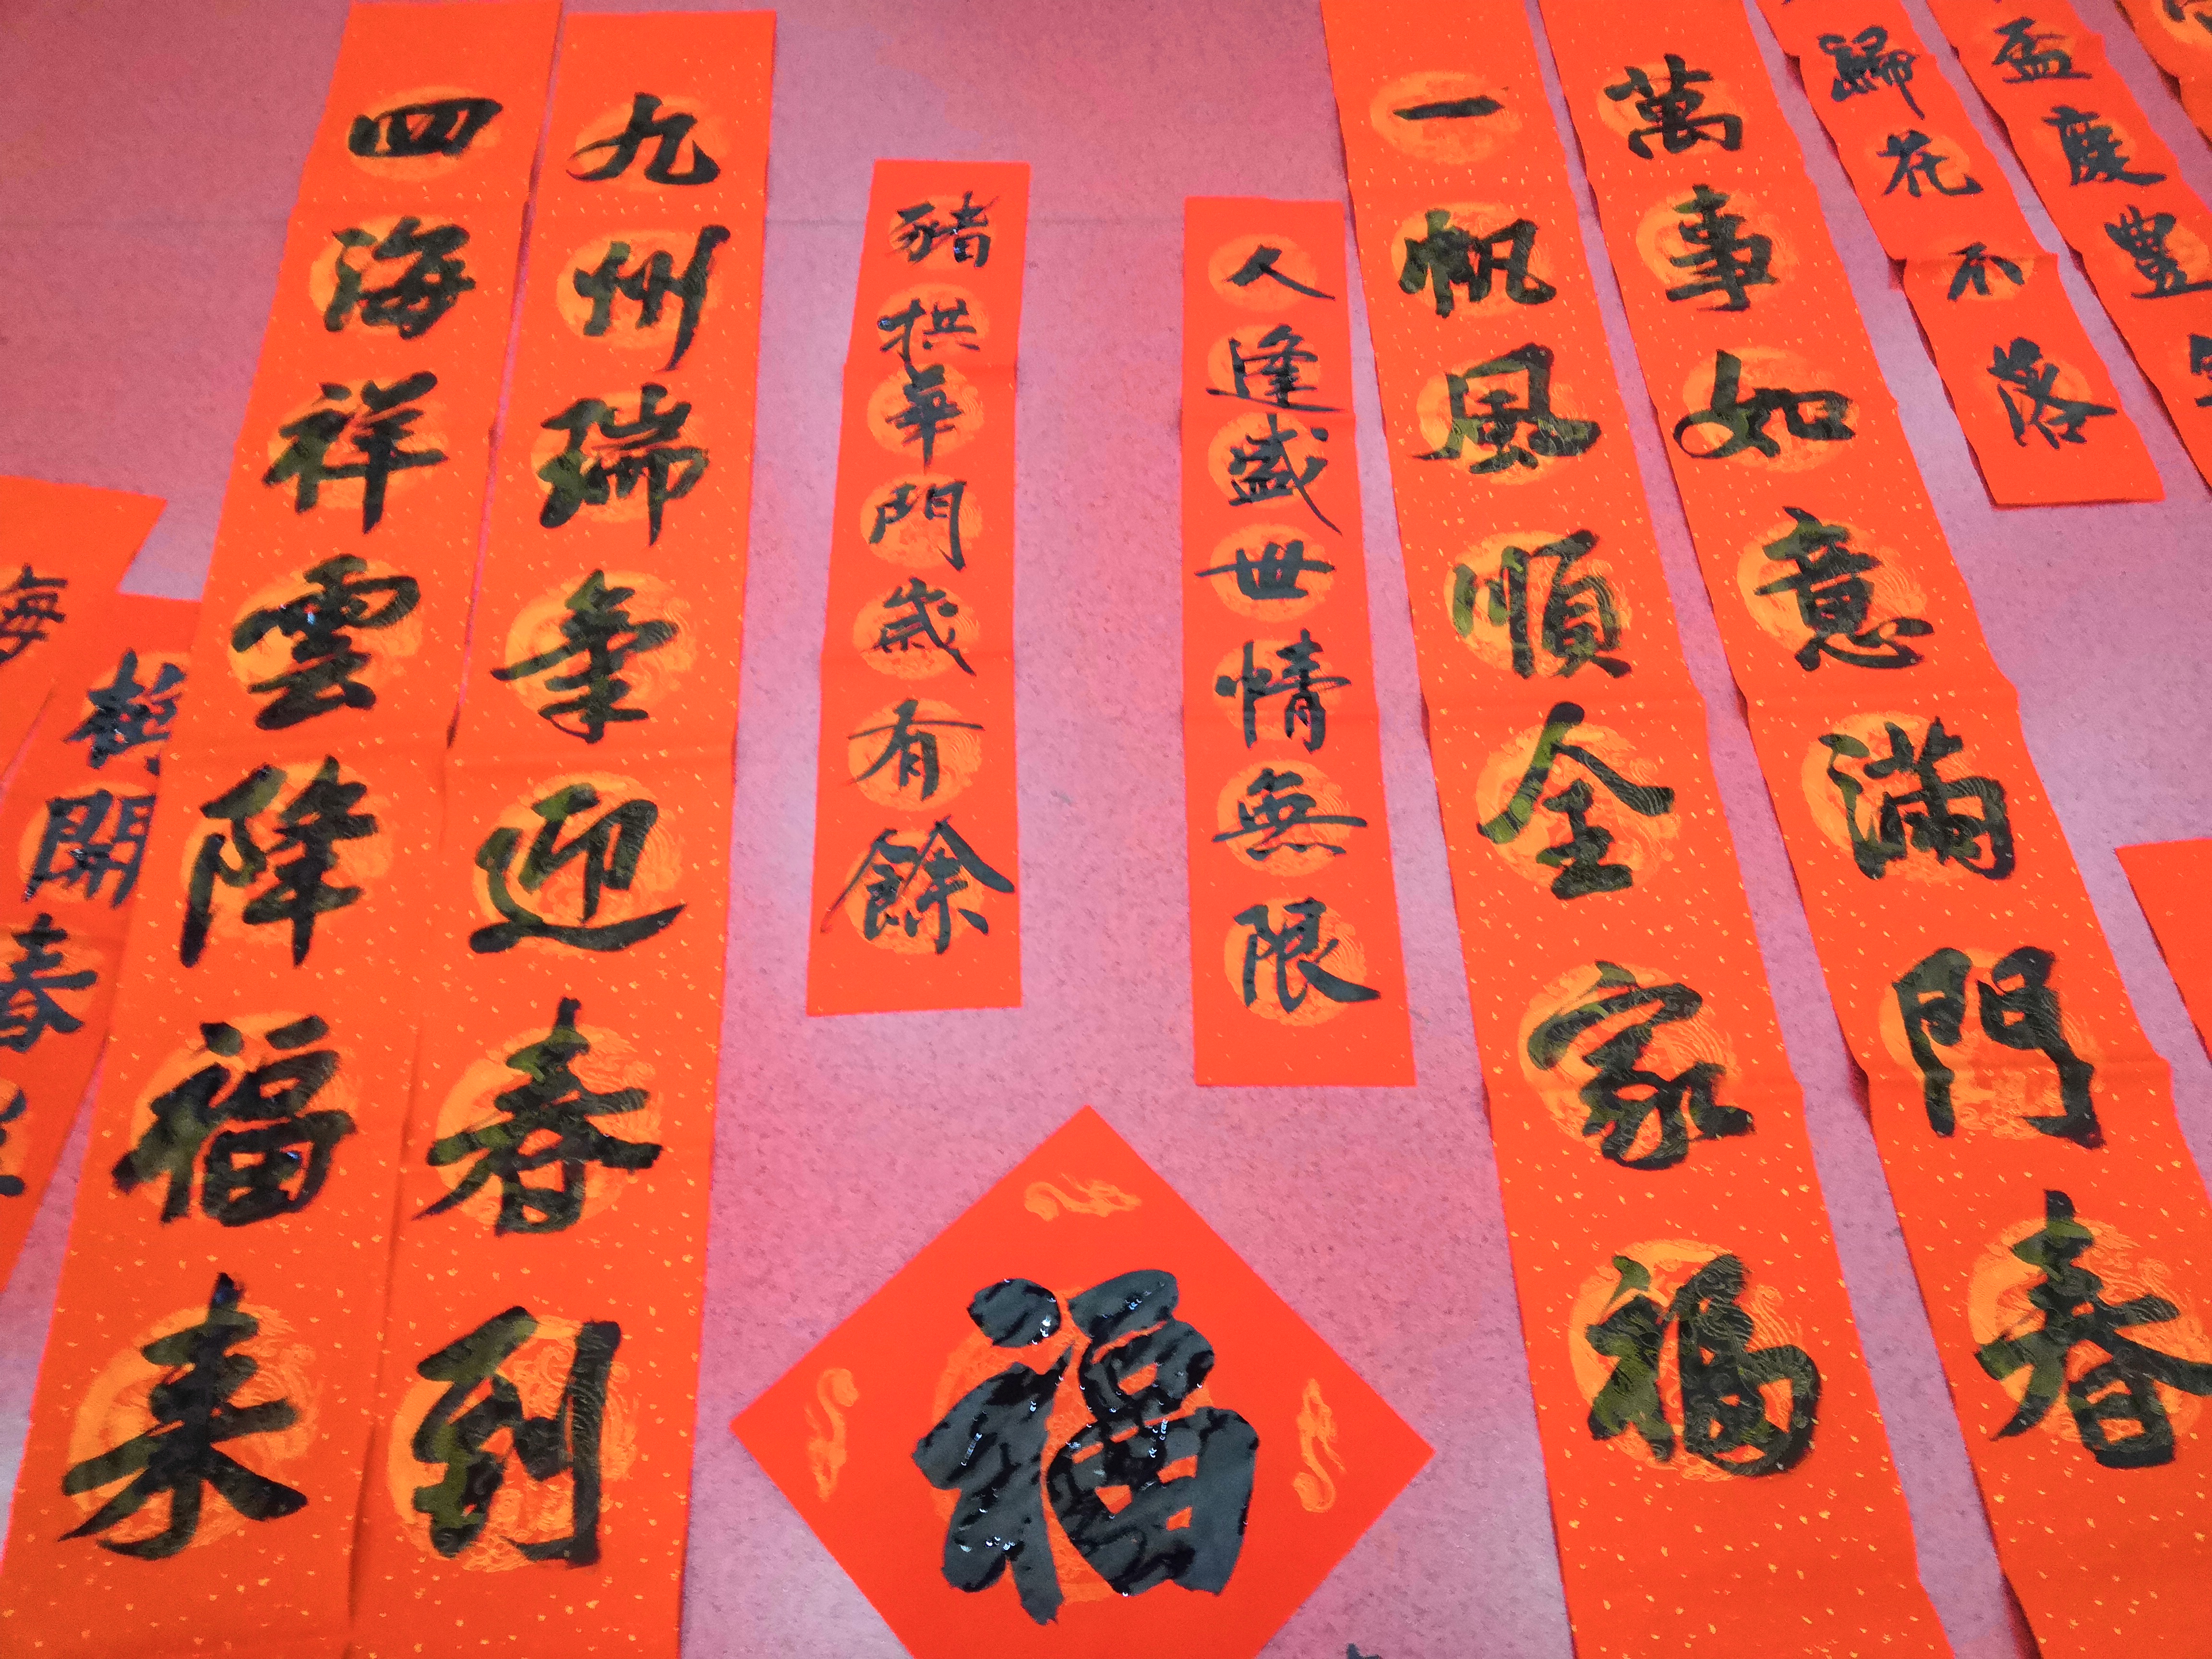 盃慶豐
歸花不落
萬事如意滿門春
一帆風順全家福
人逢盛世情無限
豬拱華門歲有餘
福
九州瑞氣迎春到
四海祥雲降福来
開春
海